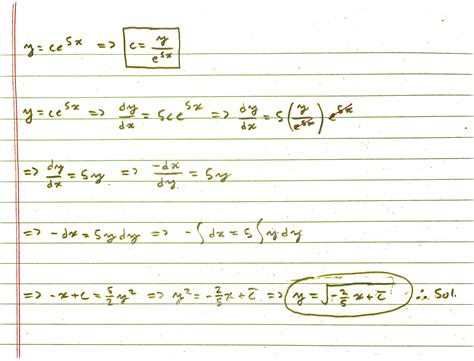 y = ce^{5x} => c = y/e^{5x}
y = ce^{5x} => dy/dx = 5ce^{5x} => dy/dx = 5(y/e^{5x}) e^{5x}
=> dy/dx = 5y => -dx/dy = 5y
=> -dx = 5y dy => -∫dx = 5∫y dy
=> -x + c = 5/2 y² => y² = -2/5 x + c̄ => y = √(-2/5 x + c̄) ∴ Sol.